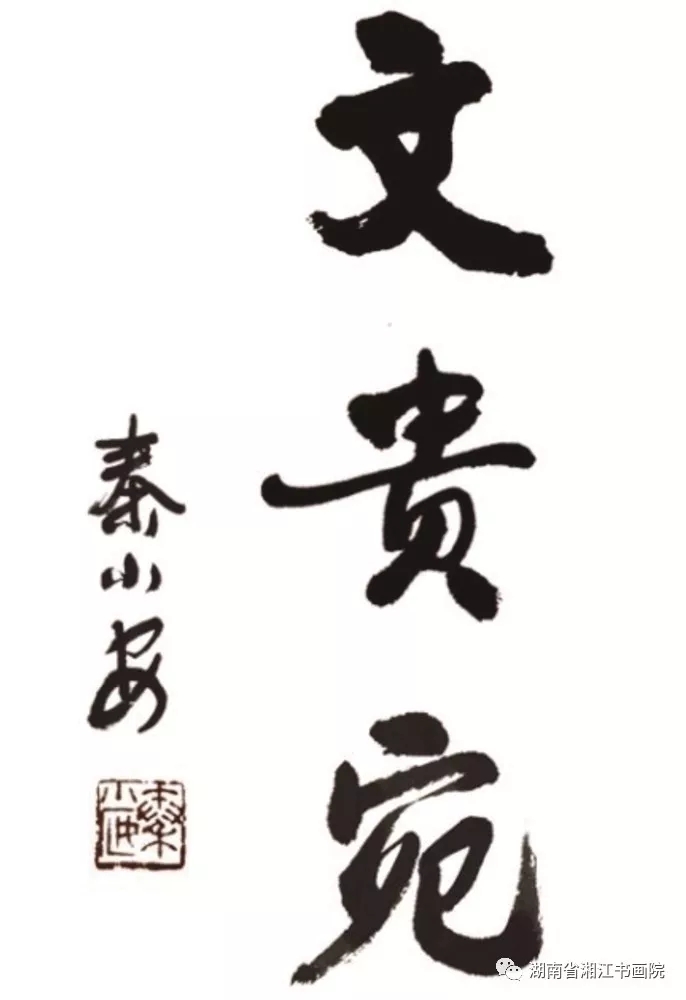 文贵宛
秦小安
湖南省湘江书画院